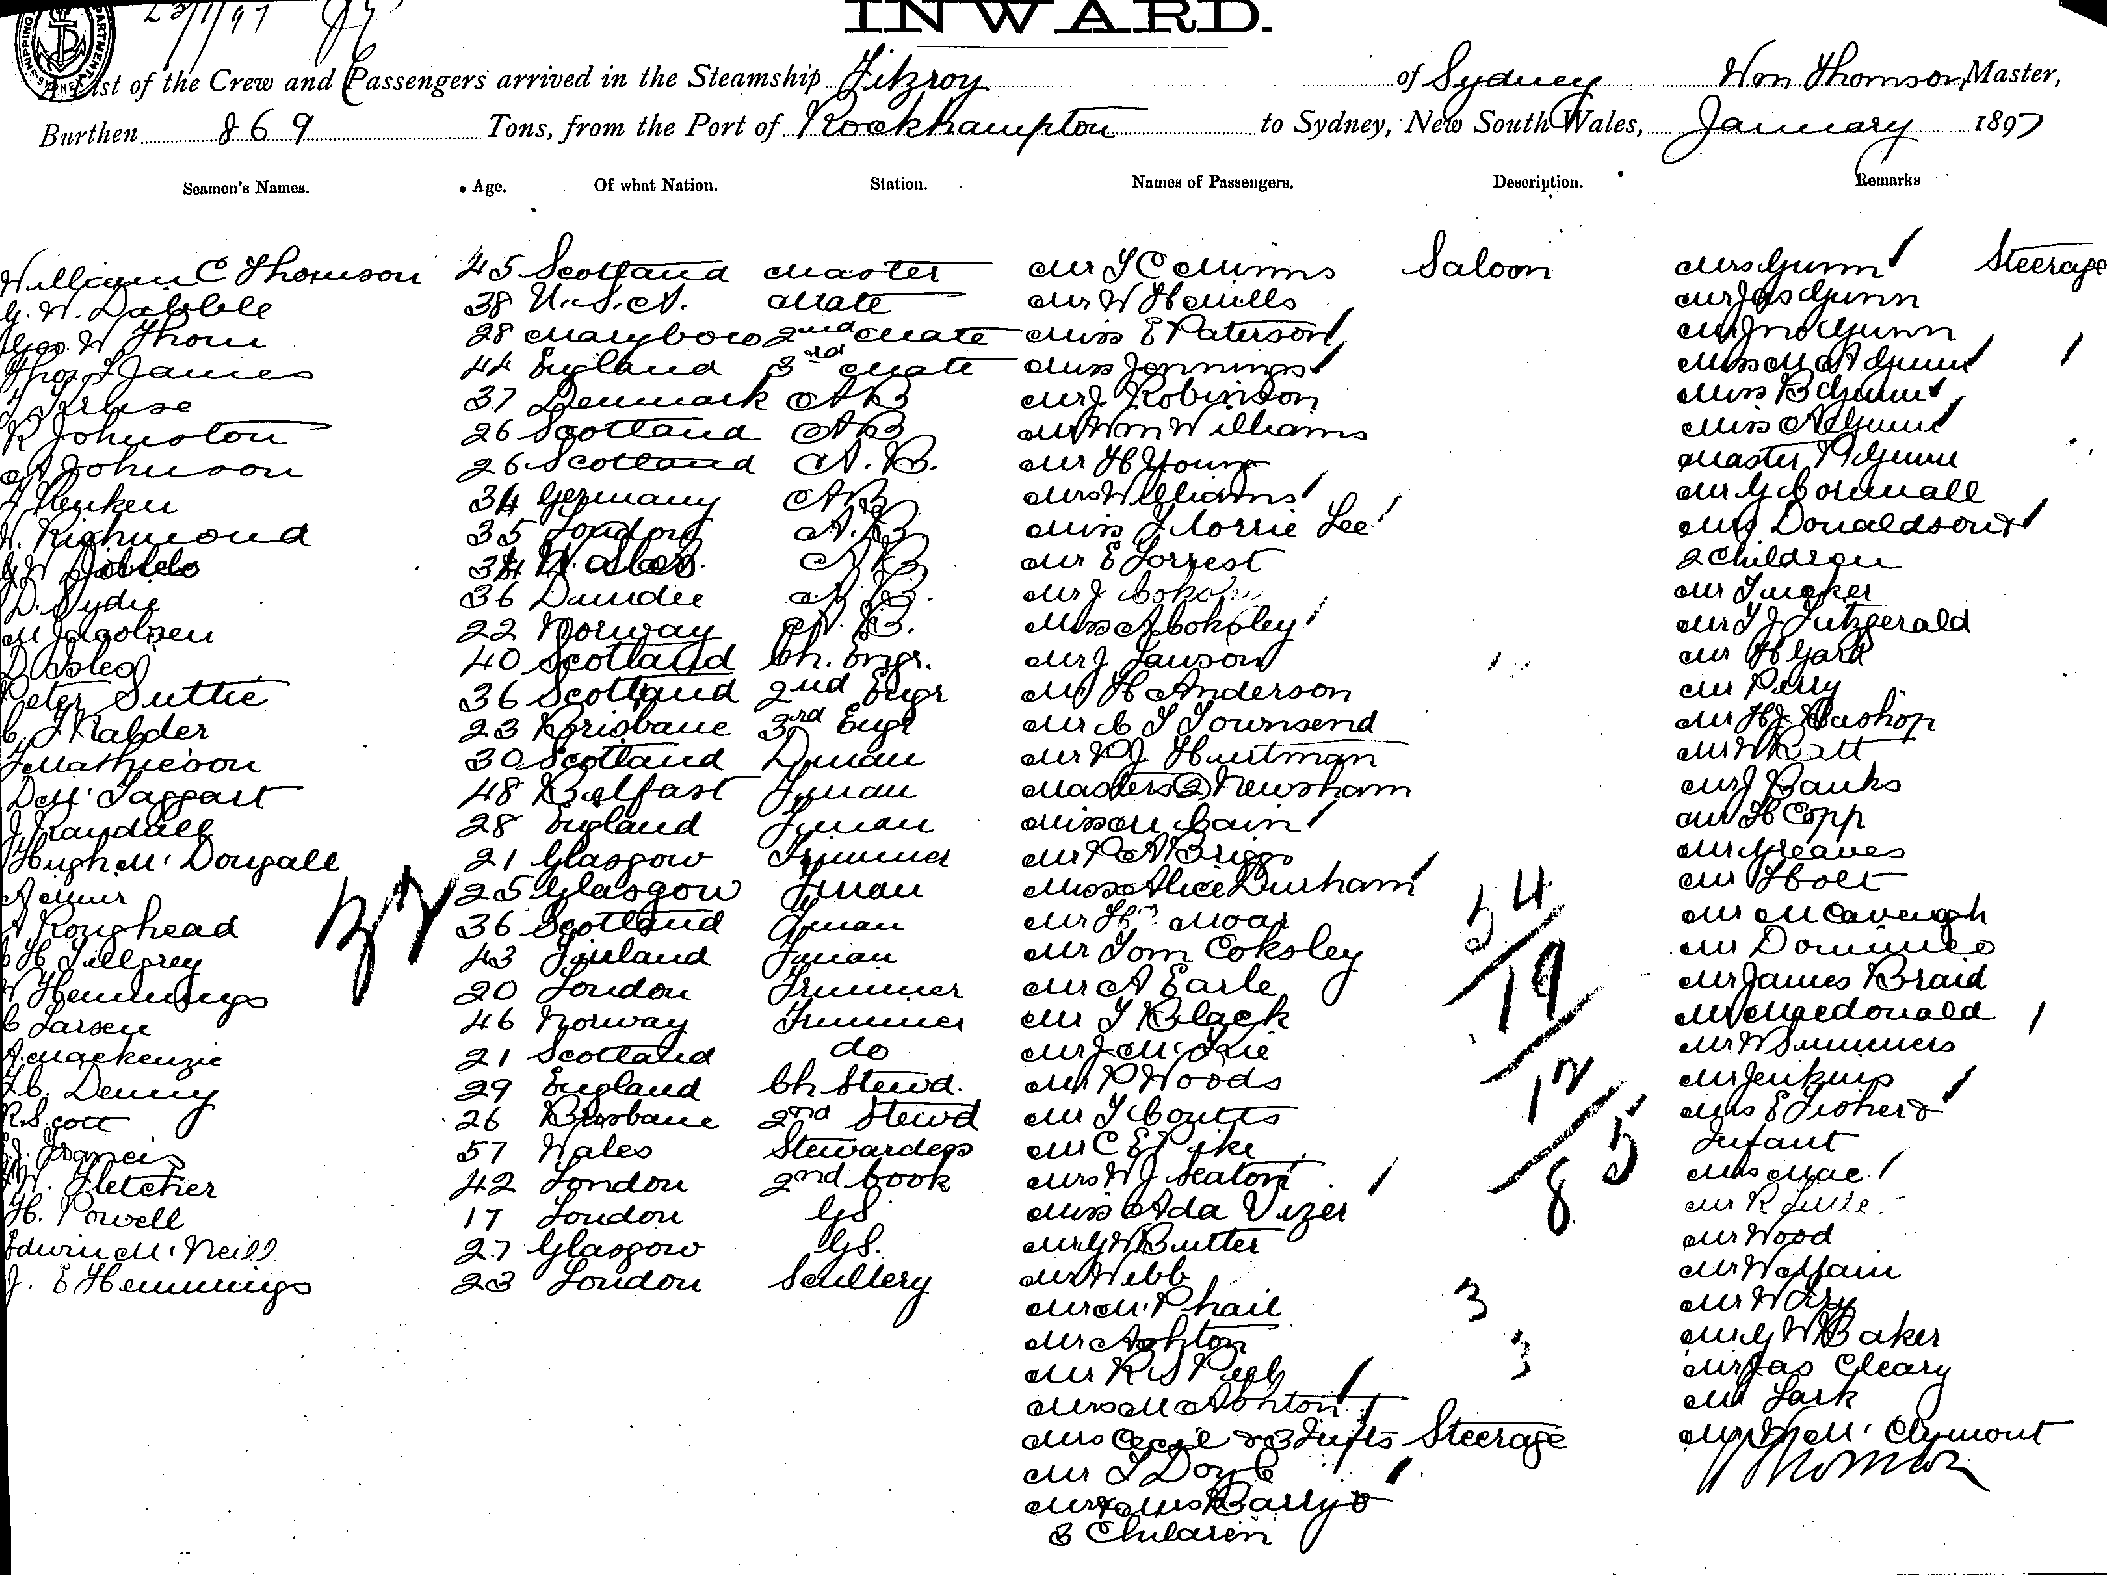 23/1/97
INWARD.
A List of the Crew and Passengers arrived in the Steamship Fitzroy of Sydney Wm Thomson, Master,
Burthen 869 Tons, from the Port of Rockhampton to Sydney, New South Wales, January 1897
Seamen's Names. Age. Of what Nation. Station. Names of Passengers. Description. Remarks
William C Thomson 45 Scotland Master Mr T C Minns Saloon Mrs Gunn Steerage
G. W. Dabble 38 U.S.A. Mate Mr W H Mills Mr Jas Gunn
Geo. W Thom 28 Maryboro 2nd Mate Miss E Paterson Mr Jno Gunn
Thos James 44 England 3rd Mate Miss Jennings Miss M A Gunn
Kruse 37 Denmark AB Mr J Robinson Miss B Gunn
R Johnston 26 Scotland AB Mr Wm Williams Miss A Gunn
A Johnson 26 Scotland A.B. Mr H Young Master P Gunn
Henken 34 Germany AB Mrs Williams Mr G Cornwall
W. Richmond 35 London A.B Miss J Corrie Lee Mrs Donaldson &
34 AB Mr E Forrest 2 Children
D. Sydie 36 Dundee A.B. Mr J Mr Tucker
M Jacobsen 22 Norway A.B. Miss A Coksley Mr T J Fitzgerald
40 Scotland Ch. Engr. Mr J Lawson Mr H Yard
Peter Suttie 36 Scotland 2nd Engr Mr H Anderson Mr Perry
C J Nalder 23 Brisbane 3rd Engr Mr C T Townsend Mr H J
J Mathieson 30 Scotland Dman Mr P J Huntman Mr W Ratt
D McTaggart 48 Belfast Fman Masters (2) Newsham Mr J Banks
J Randall 28 England Fman Miss M Cain Mr H Copp
Hugh McDougall 21 Glasgow Trimmer Mr P A Briggs Mr Greaves
A Muir 25 Glasgow Fman Miss Alice Durham Mr Holt
A Roughead 36 Scotland Fman Mr Hy Moar Mr McCavengh
32
C H Tillfrey 43 Finland Fman Mr Tom Coksley Mr Dominico
W Hemmings 20 London Trimmer Mr A Earle Mr James Braid
C Larsen 46 Norway Trimmer Mr T Black Mr Macdonald
A Mackenzie 21 Scotland do Mr J McKie Mr W Summers
Denny 29 England Ch Stewd. Mr P Woods Mr Jenkins
R. Scott 26 Brisbane 2nd Stewd Mr T Coutts Mrs E Fisher &
Francis 57 Wales Stewardess Mr C E Pike Infant
W. Fletcher 42 London 2nd Cook Mrs W J Seaton Mrs Mac
H. Powell 17 London GS Miss Ada Vizer Mr R
Edwin McNeill 27 Glasgow GS. Mr G W Butter Mr Wood
J. E Hemmings 23 London Scullery Mr Webb Mr Wolfain
54
19
12
85
Mr McPhail Mr W
3
Mr Ashton Mr G W Baker
3
Mr R S Peel Mr Jas Cleary
Mrs M Ashton Mr Lark
Mrs Cecil & 3 Infts Steerage Mr McClymont
Mr T Doyle W Thomson
Mr & Mrs Barry &
3 Children